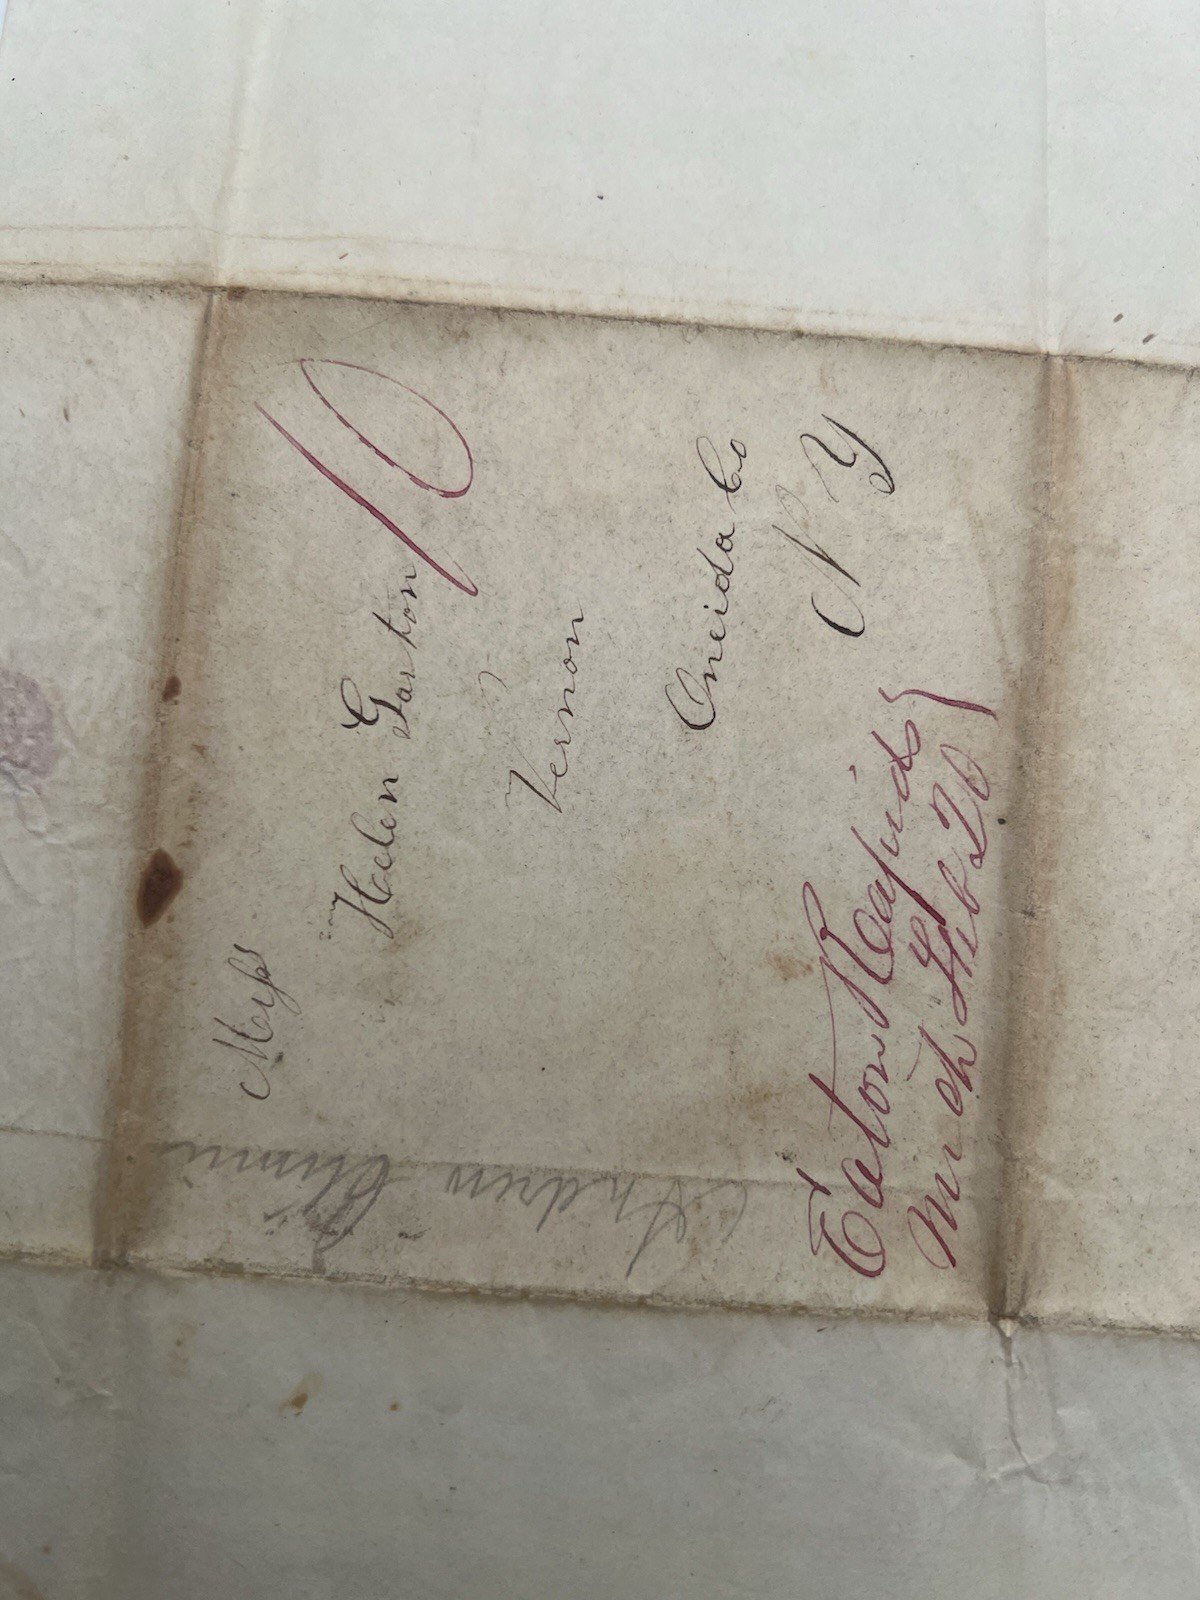 Miss
Helen Garton
Vernon
Oneida Co
N Y
10
Eaton Rapids
Mich Feb 20
Andrew